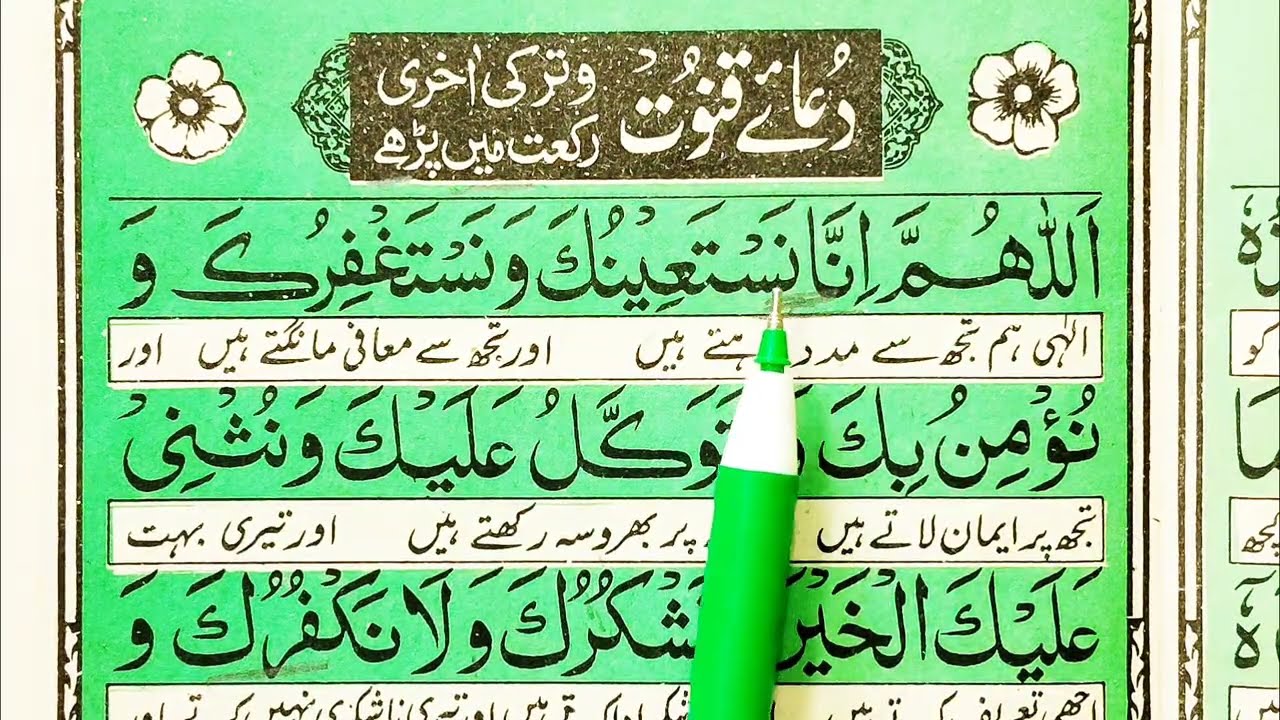 دُعائے قنُوت
وتر کی اٰخری
رکعت میں پڑھے
اَللّٰهُمَّ اِنَّا نَسْتَعِيْنُكَ وَنَسْتَغْفِرُكَ وَ
الٰہی ہم تجھ سے ہیں اور تجھ سے معافی مانگتے ہیں اور
نُؤْمِنُ بِكَ عَلَيْكَ وَنُثْنِیْ
تجھ پر ایمان لاتے ہیں پر بھروسہ رکھتے ہیں اور تیری بہت
عَلَيْكَ الْخَيْرَ وَلَا نَكْفُرُكَ وَ